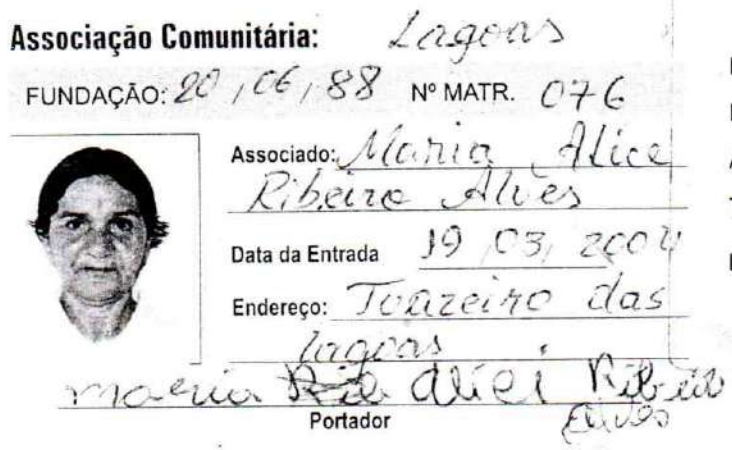 Associação Comunitária: Lagoas
FUNDAÇÃO: 20/06/88 Nº MATR. 076
Associado: Maria Alice
Ribeiro Alves
Data da Entrada 19/03/2004
Endereço: Joazeiro das
lagoas
maria Rib alici Ribeiro
Alves
Portador